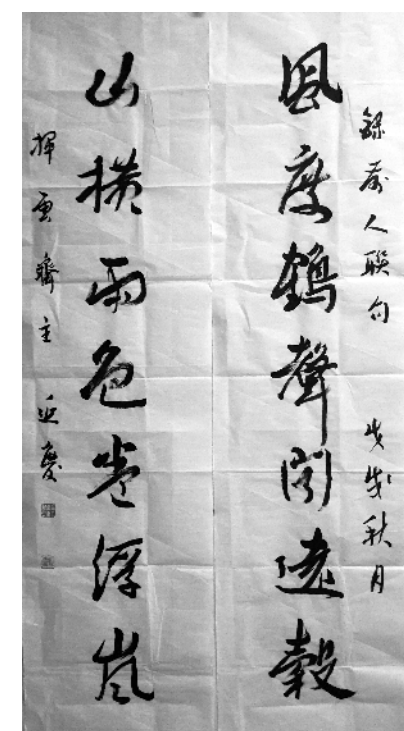 錄前人聯句 戊戌秋月
風度鶴聲聞遠穀
山横雨色卷浮嵐
揮雲齋主 慶